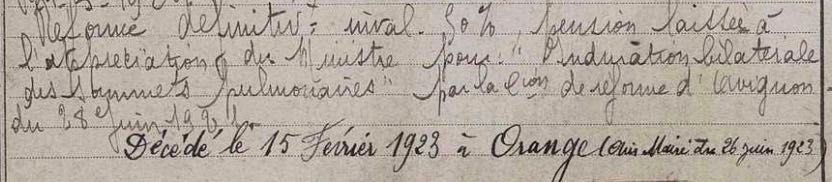 Réformé définitif = inval. 30 %, pension laissée à
l'appréciation du Ministre pour "Induration bilatérale
des sommets pulmonaires" par la Cion de réforme d'Avignon
du 28 juin 192
Décédé le 15 Février 1923 à Orange (avis Mairie du 26 juin 1923)